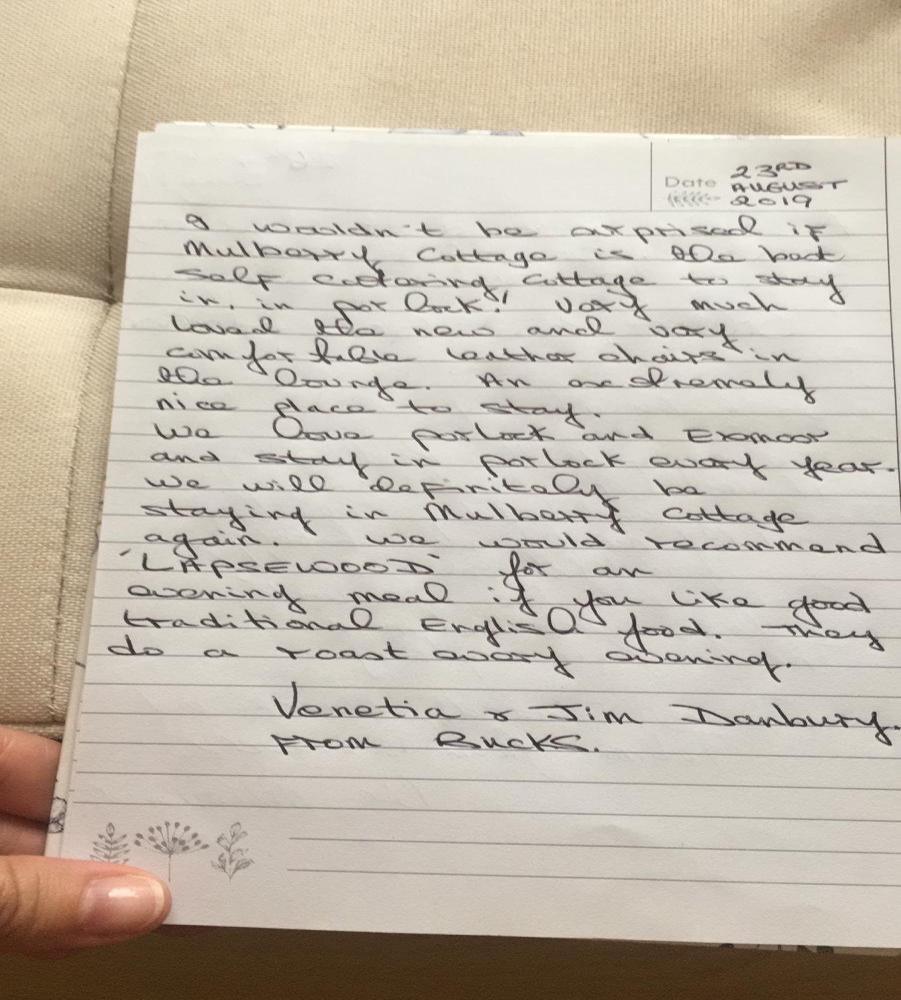 Date 23RD
AUGUST
2019
I wouldn't be surprised if
Mulberry Cottage is the best
self catering cottage to stay
in, in porlock! Very much
loved the new and very
comfortable leather chairs in
the lounge. An extremely
nice place to stay.
We love porlock and Exmoor
and stay in porlock every year.
We will definitely be
staying in Mulberry Cottage
again. We would recommend
'LAPSEWOOD' for an
evening meal if you like good
traditional English food. They
do a roast every evening.
Venetia & Jim Danbury.
From Bucks.